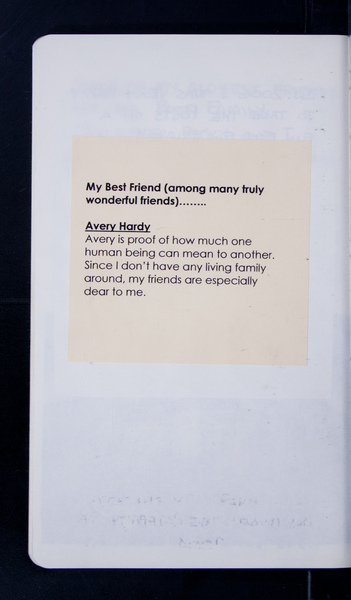 My Best Friend (among many truly
wonderful friends)........
Avery Hardy
Avery is proof of how much one
human being can mean to another.
Since I don't have any living family
around, my friends are especially
dear to me.